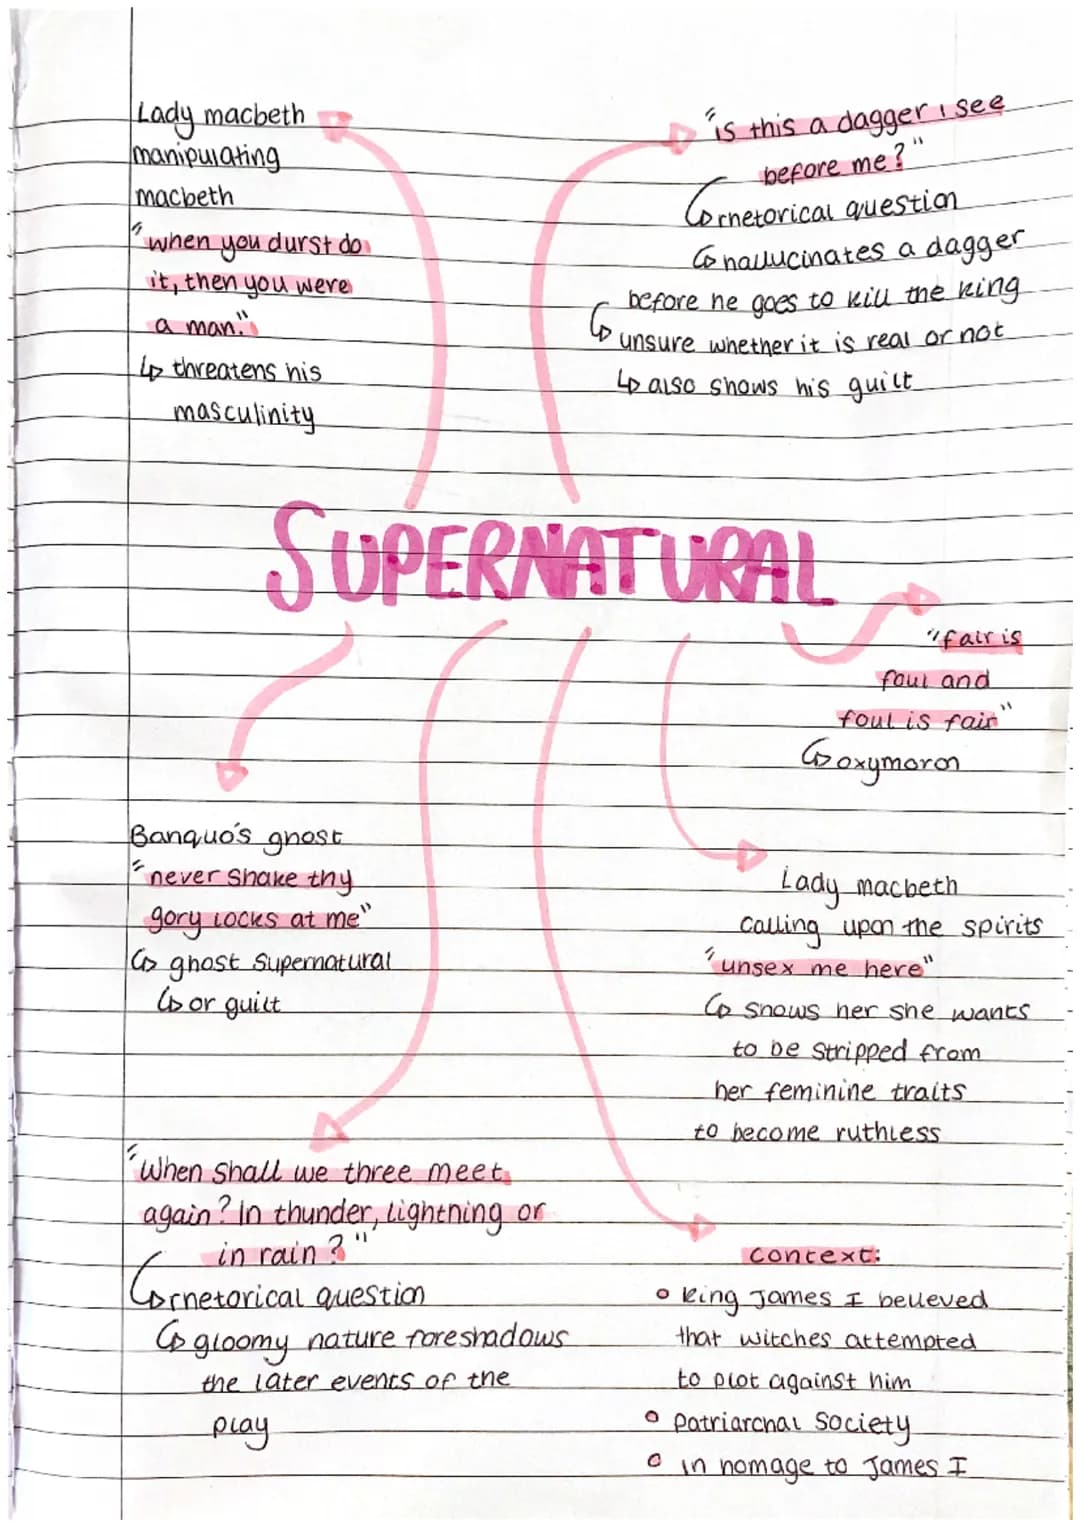 Lady macbeth
manipulating
macbeth
"when you durst do
it, then you were
a man."
↳ threatens his
masculinity
"is this a dagger i see
before me?"
↳ rhetorical question
↳ hallucinates a dagger
before he goes to kill the king
↳ unsure whether it is real or not
↳ also shows his guilt
SUPERNATURAL
"fair is
foul and
foul is fair"
↳ oxymoron
Banquo's ghost
"never shake thy
gory locks at me"
↳ ghost supernatural
↳ or guilt
Lady macbeth
calling upon the spirits
"unsex me here"
↳ shows her she wants
to be stripped from
her feminine traits
to become ruthless
"When shall we three meet
again? In thunder, lightning or
in rain?"
↳ rhetorical question
↳ gloomy nature foreshadows
the later events of the
play
context:
• King James I believed
that witches attempted
to plot against him
• patriarchal society
• in homage to James I